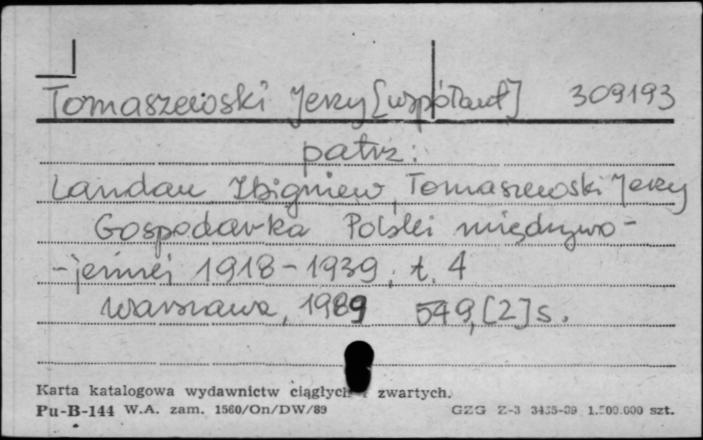 Tomaszewski Jerzy [współaut] 309193
patrz:
Landau Zbigniew, Tomaszewski Jerzy
Gospodarka Polski międzywo-
-jennej 1918-1939, t. 4
Warszawa, 1989 549,[2]s.
Karta katalogowa wydawnictw ciągłych i zwartych.
Pu-B-144 W.A. zam. 1560/On/DW/89 GZG Z-3 1.500.000 szt.